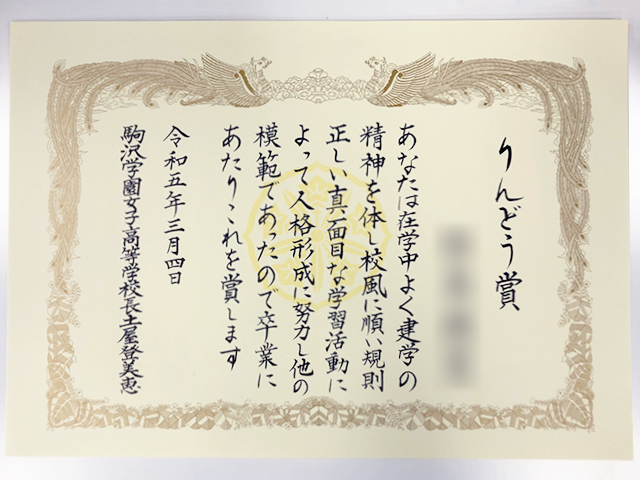 りんどう賞
あなたは在学中よく建学の
精神を体し校風に順い規則
正しい真面目な学習活動に
よって人格形成に努力し他の
模範であったので卒業に
あたりこれを賞します
令和五年三月四日
駒沢学園女子高等学校長土屋登美恵